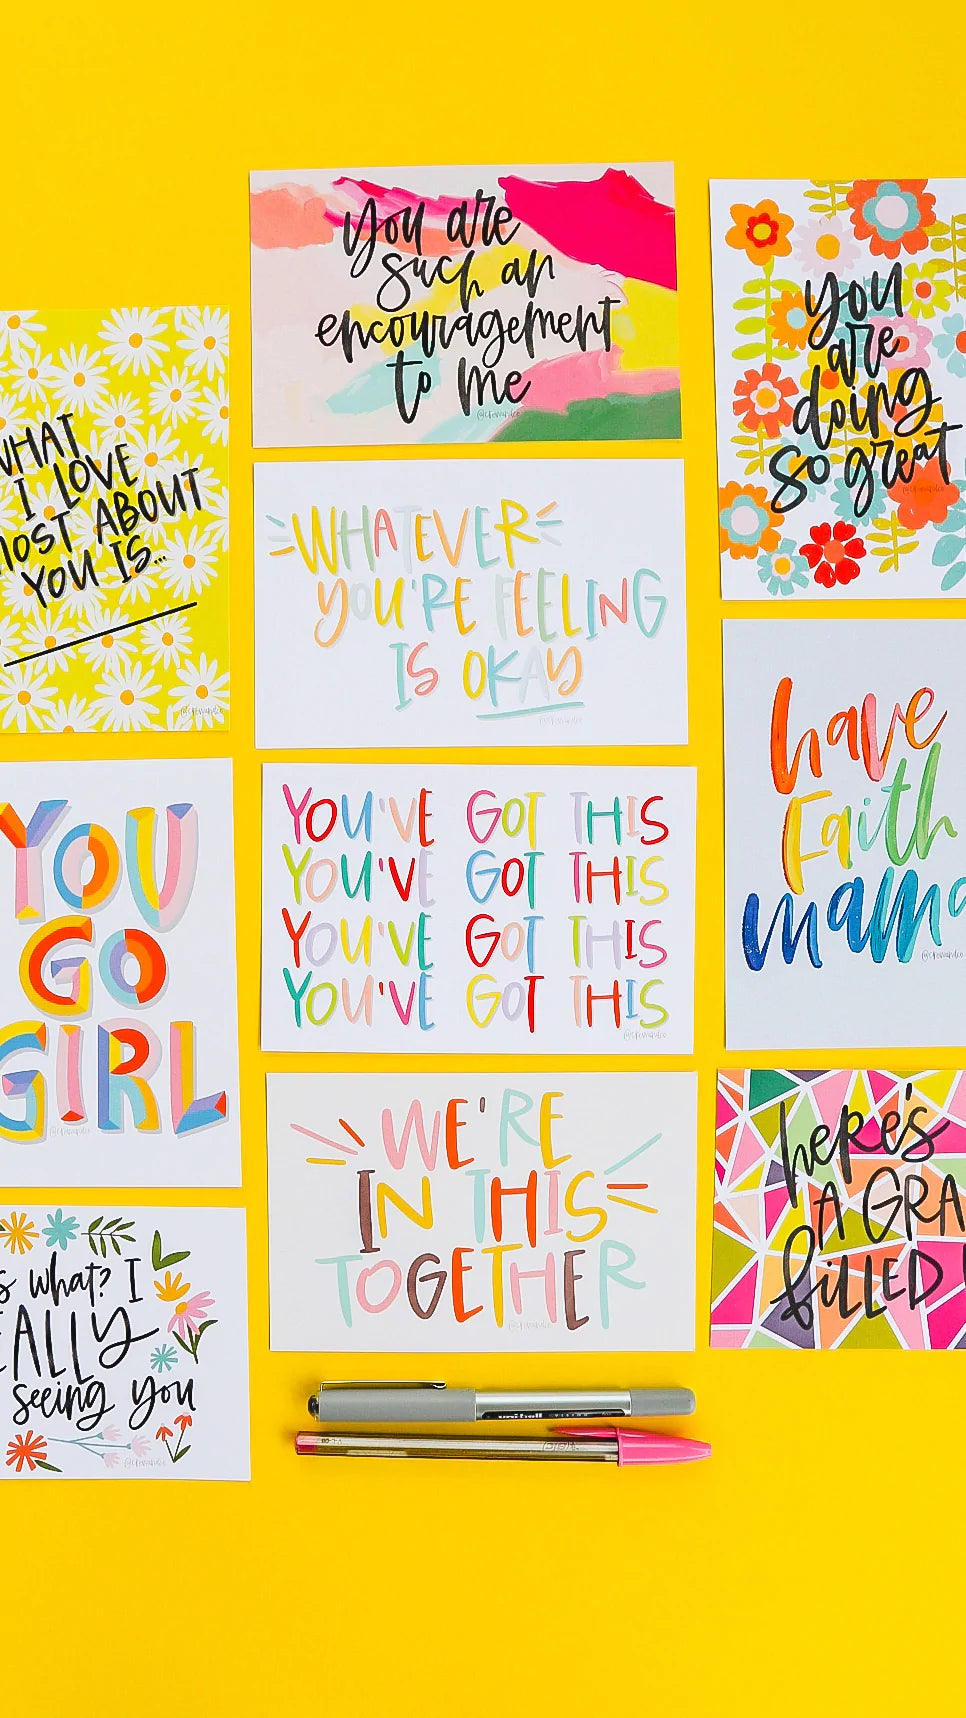 WHAT
I LOVE
MOST ABOUT
YOU IS...
@crewandco
YOU
GO
GIRL
@crewandco
what? I
seeing you
@crewandco
you are
such an
encouragement
to me
@crewandco
WHATEVER
YOU'RE FEELING
IS OKAY
@crewandco
YOU'VE GOT THIS
YOU'VE GOT THIS
YOU'VE GOT THIS
YOU'VE GOT THIS
@crewandco
WE'RE
IN THIS
TOGETHER
@crewandco
uni-ball VISION
BIC
you
are
doing
so great
@crewandco
have
Faith
mama
@crewandco
here's
A GRA
FILLED